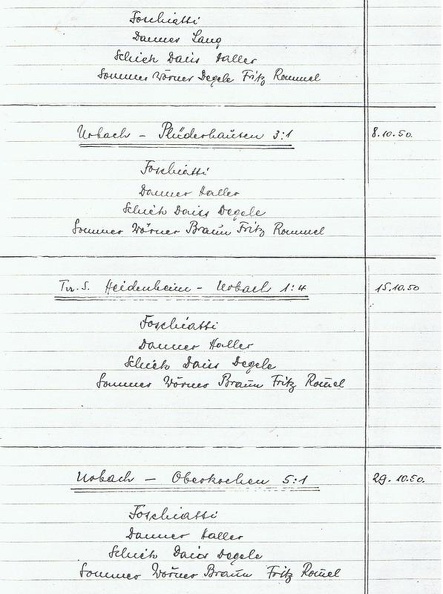 Foschiatti
Danner Lang
Schiek Daiss Haller
Sommer Wörner Degele Fritz Rommel
Urbach - Plüderhausen 3:1 8.10.50.
Foschiatti
Danner Haller
Schiek Daiss Degele
Sommer Wörner Braun Fritz Rommel
Tv. S. Heidenheim - Urbach 1:4 15.10.50
Foschiatti
Danner Haller
Schiek Daiss Degele
Sommer Wörner Braun Fritz Rom̄el
Urbach - Oberkochen 5:1 29.10.50.
Foschiatti
Danner Haller
Schiek Daiss Degele
Sommer Wörner Braun Fritz Rom̄el